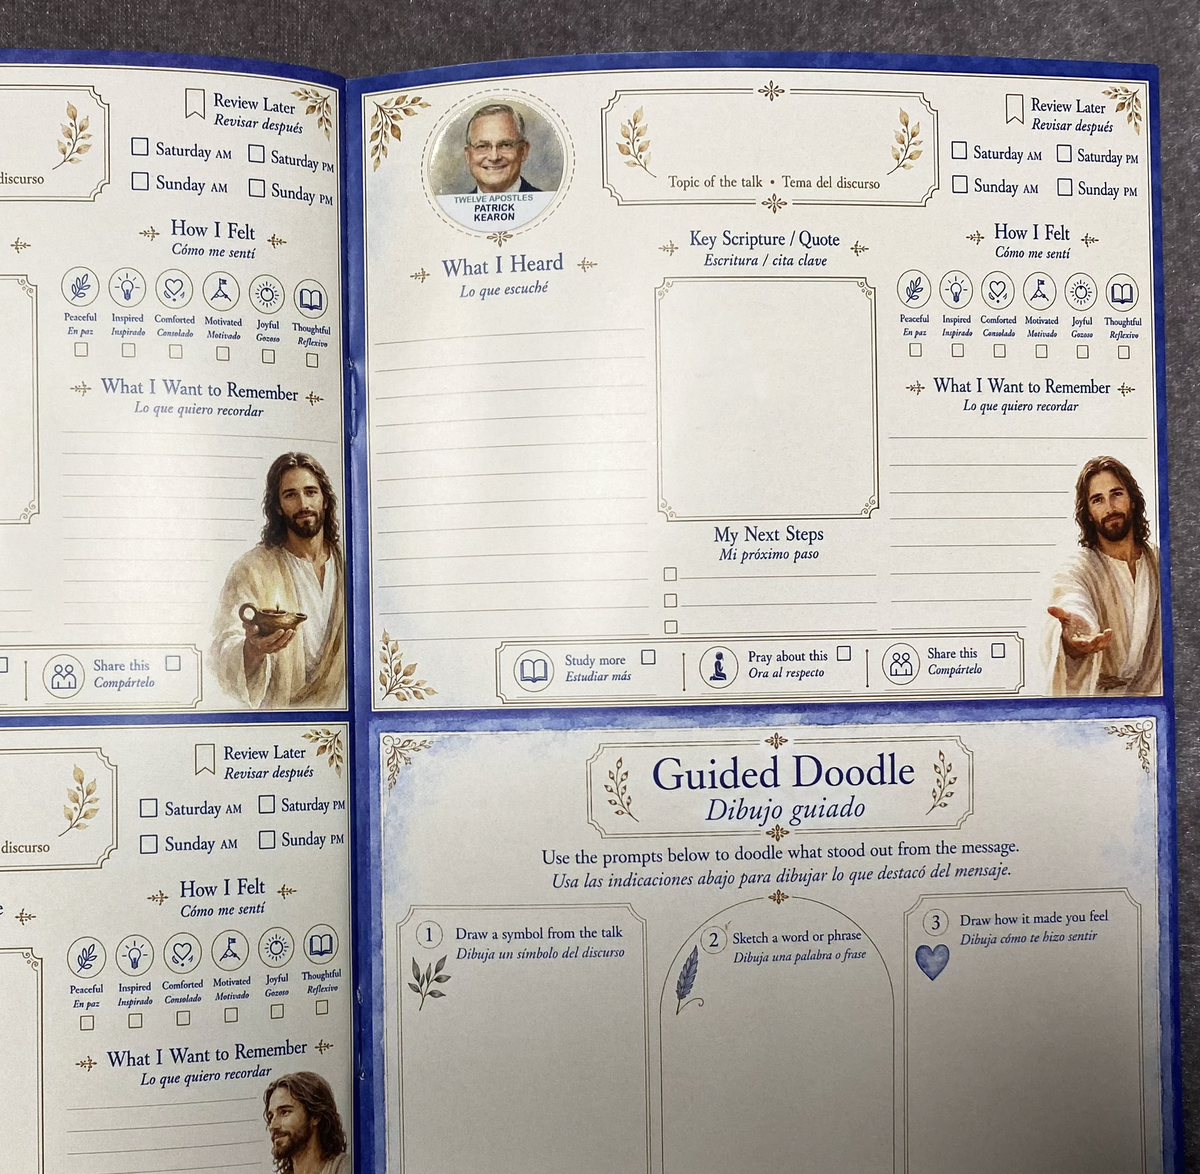 Review Later
Revisar después
Saturday AM
Saturday PM
Sunday AM
Sunday PM
discurso
How I Felt
Cómo me sentí
Peaceful
En paz
Inspired
Inspirado
Comforted
Consolado
Motivated
Motivado
Joyful
Gozoso
Thoughtful
Reflexivo
What I Want to Remember
Lo que quiero recordar
Share this
Compártelo
Review Later
Revisar después
Saturday AM
Saturday PM
Sunday AM
Sunday PM
discurso
How I Felt
Cómo me sentí
Peaceful
En paz
Inspired
Inspirado
Comforted
Consolado
Motivated
Motivado
Joyful
Gozoso
Thoughtful
Reflexivo
What I Want to Remember
Lo que quiero recordar
TWELVE APOSTLES
PATRICK
KEARON
Topic of the talk • Tema del discurso
Review Later
Revisar después
Saturday AM
Saturday PM
Sunday AM
Sunday PM
What I Heard
Lo que escuché
Key Scripture / Quote
Escritura / cita clave
How I Felt
Cómo me sentí
Peaceful
En paz
Inspired
Inspirado
Comforted
Consolado
Motivated
Motivado
Joyful
Gozoso
Thoughtful
Reflexivo
What I Want to Remember
Lo que quiero recordar
My Next Steps
Mi próximo paso
Study more
Estudiar más
Pray about this
Ora al respecto
Share this
Compártelo
Guided Doodle
Dibujo guiado
Use the prompts below to doodle what stood out from the message.
Usa las indicaciones abajo para dibujar lo que destacó del mensaje.
1 Draw a symbol from the talk
Dibuja un símbolo del discurso
2 Sketch a word or phrase
Dibuja una palabra o frase
3 Draw how it made you feel
Dibuja cómo te hizo sentir